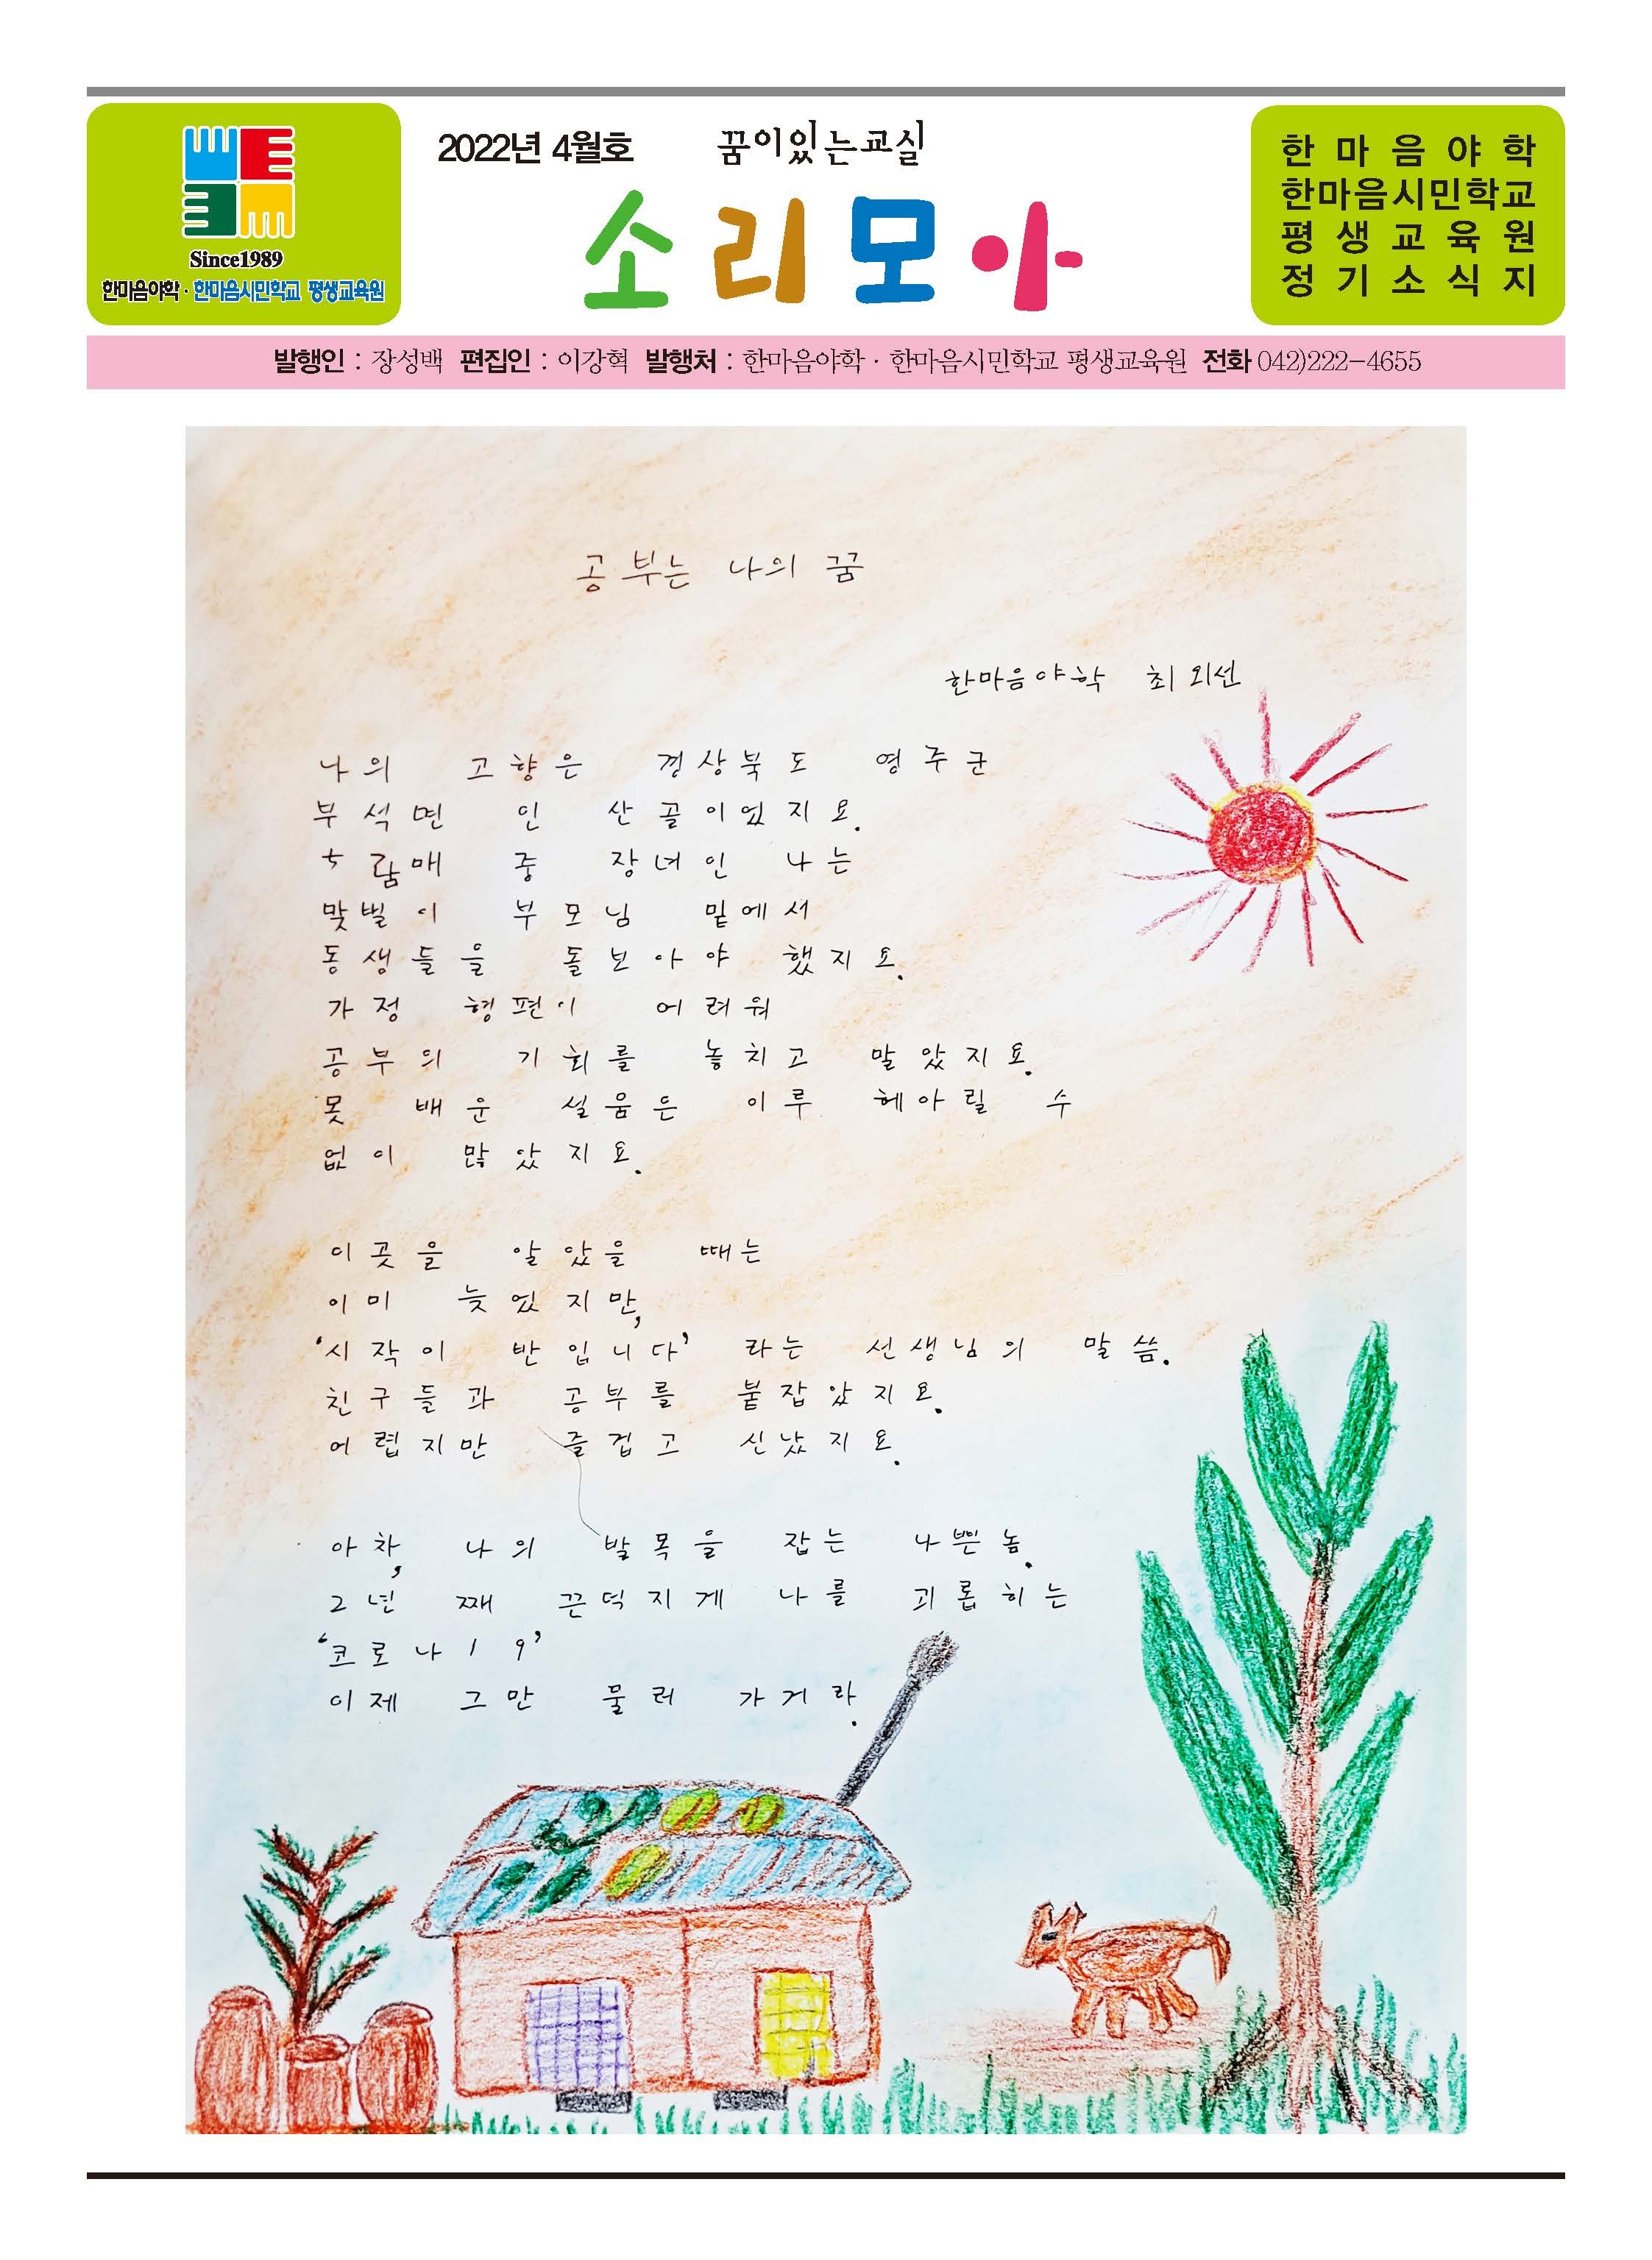 Since1989
한마음야학 · 한마음시민학교 평생교육원
2022년 4월호 꿈이있는교실
소리모아
한마음야학
한마음시민학교
평생교육원
정기소식지
발행인 : 장성백 편집인 : 이강혁 발행처 : 한마음야학 · 한마음시민학교 평생교육원 전화 042)222-4655
공부는 나의 꿈
한마음야학 최외선
나의 고향은 경상북도 영주군
부석면 인 산골이었지요.
매 중 장녀인 나는
맞벌이 부모님 밑에서
동생들을 돌보아야 했지요.
가정 형편이 어려워
공부의 기회를 놓치고 말았지요.
못 배운 설움은 이루 헤아릴 수
없이 많았지요.
이곳을 알았을 때는
이미 늦었지만,
‘시작이 반입니다’ 라는 선생님의 말씀.
친구들과 공부를 붙잡았지요.
어렵지만 즐겁고 신났지요.
아차, 나의 발목을 잡는 나쁜놈.
2년 째 끈덕지게 나를 괴롭히는
‘코로나19’
이제 그만 물러 가거라.